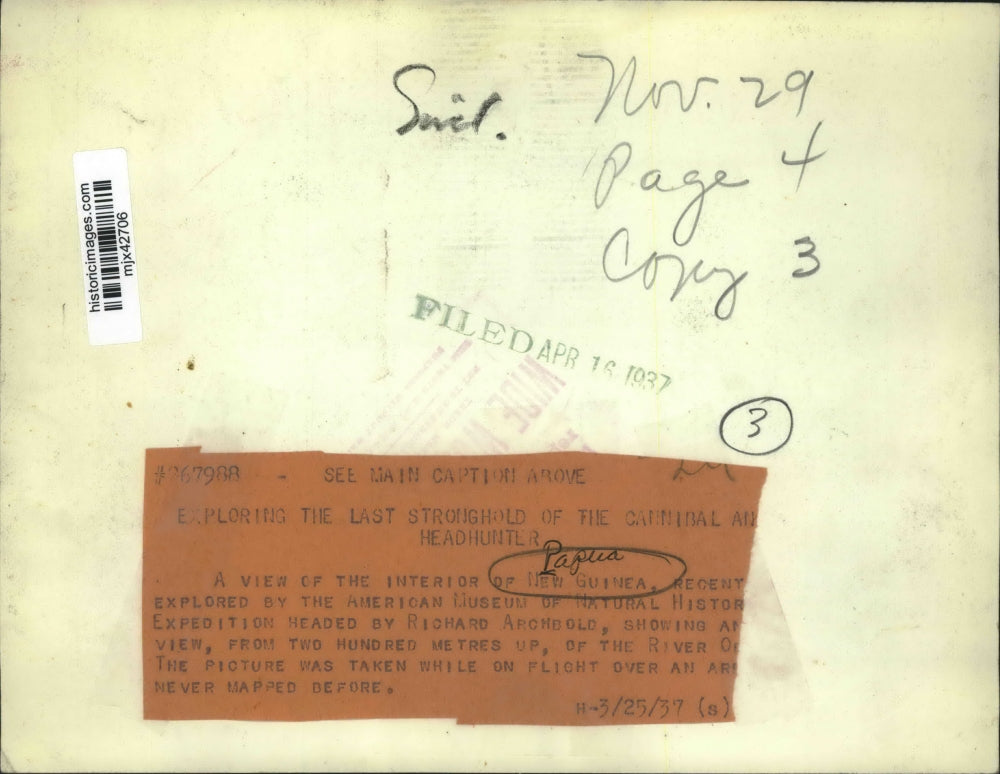 Nov. 29
Page 4
Copy 3
historicimages.com
mjx42706
FILED APR 16 1937
WIDE
3
#267988 - SEE MAIN CAPTION ABOVE
EXPLORING THE LAST STRONGHOLD OF THE CANNIBAL AN
HEADHUNTER
Papua
A VIEW OF THE INTERIOR OF NEW GUINEA, RECENT
EXPLORED BY THE AMERICAN MUSEUM OF NATURAL HISTOR
EXPEDITION HEADED BY RICHARD ARCHBOLD, SHOWING AN
VIEW, FROM TWO HUNDRED METRES UP, OF THE RIVER
THE PICTURE WAS TAKEN WHILE ON FLIGHT OVER AN
NEVER MAPPED BEFORE.
H-3/25/37 (s)